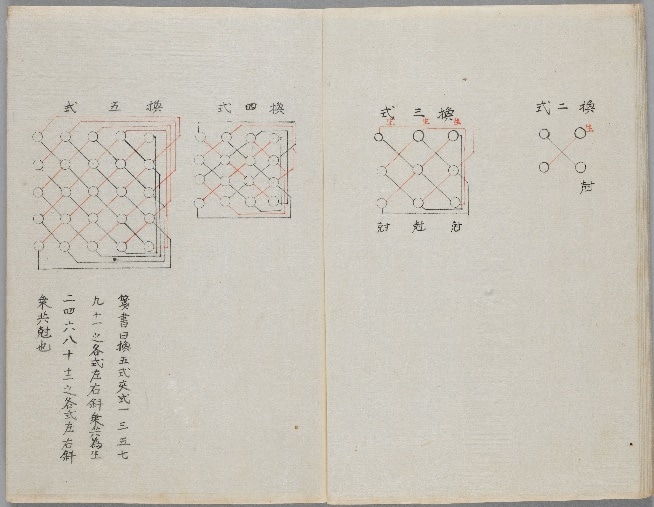 換二式
生
尅
換三式
生 生 生
尅 尅 尅
換四式
換五式
筭書曰換五式交式一三五七
九十一之各式左右斜乗共為生
二四六八十十二之各式左右斜
乗共尅也